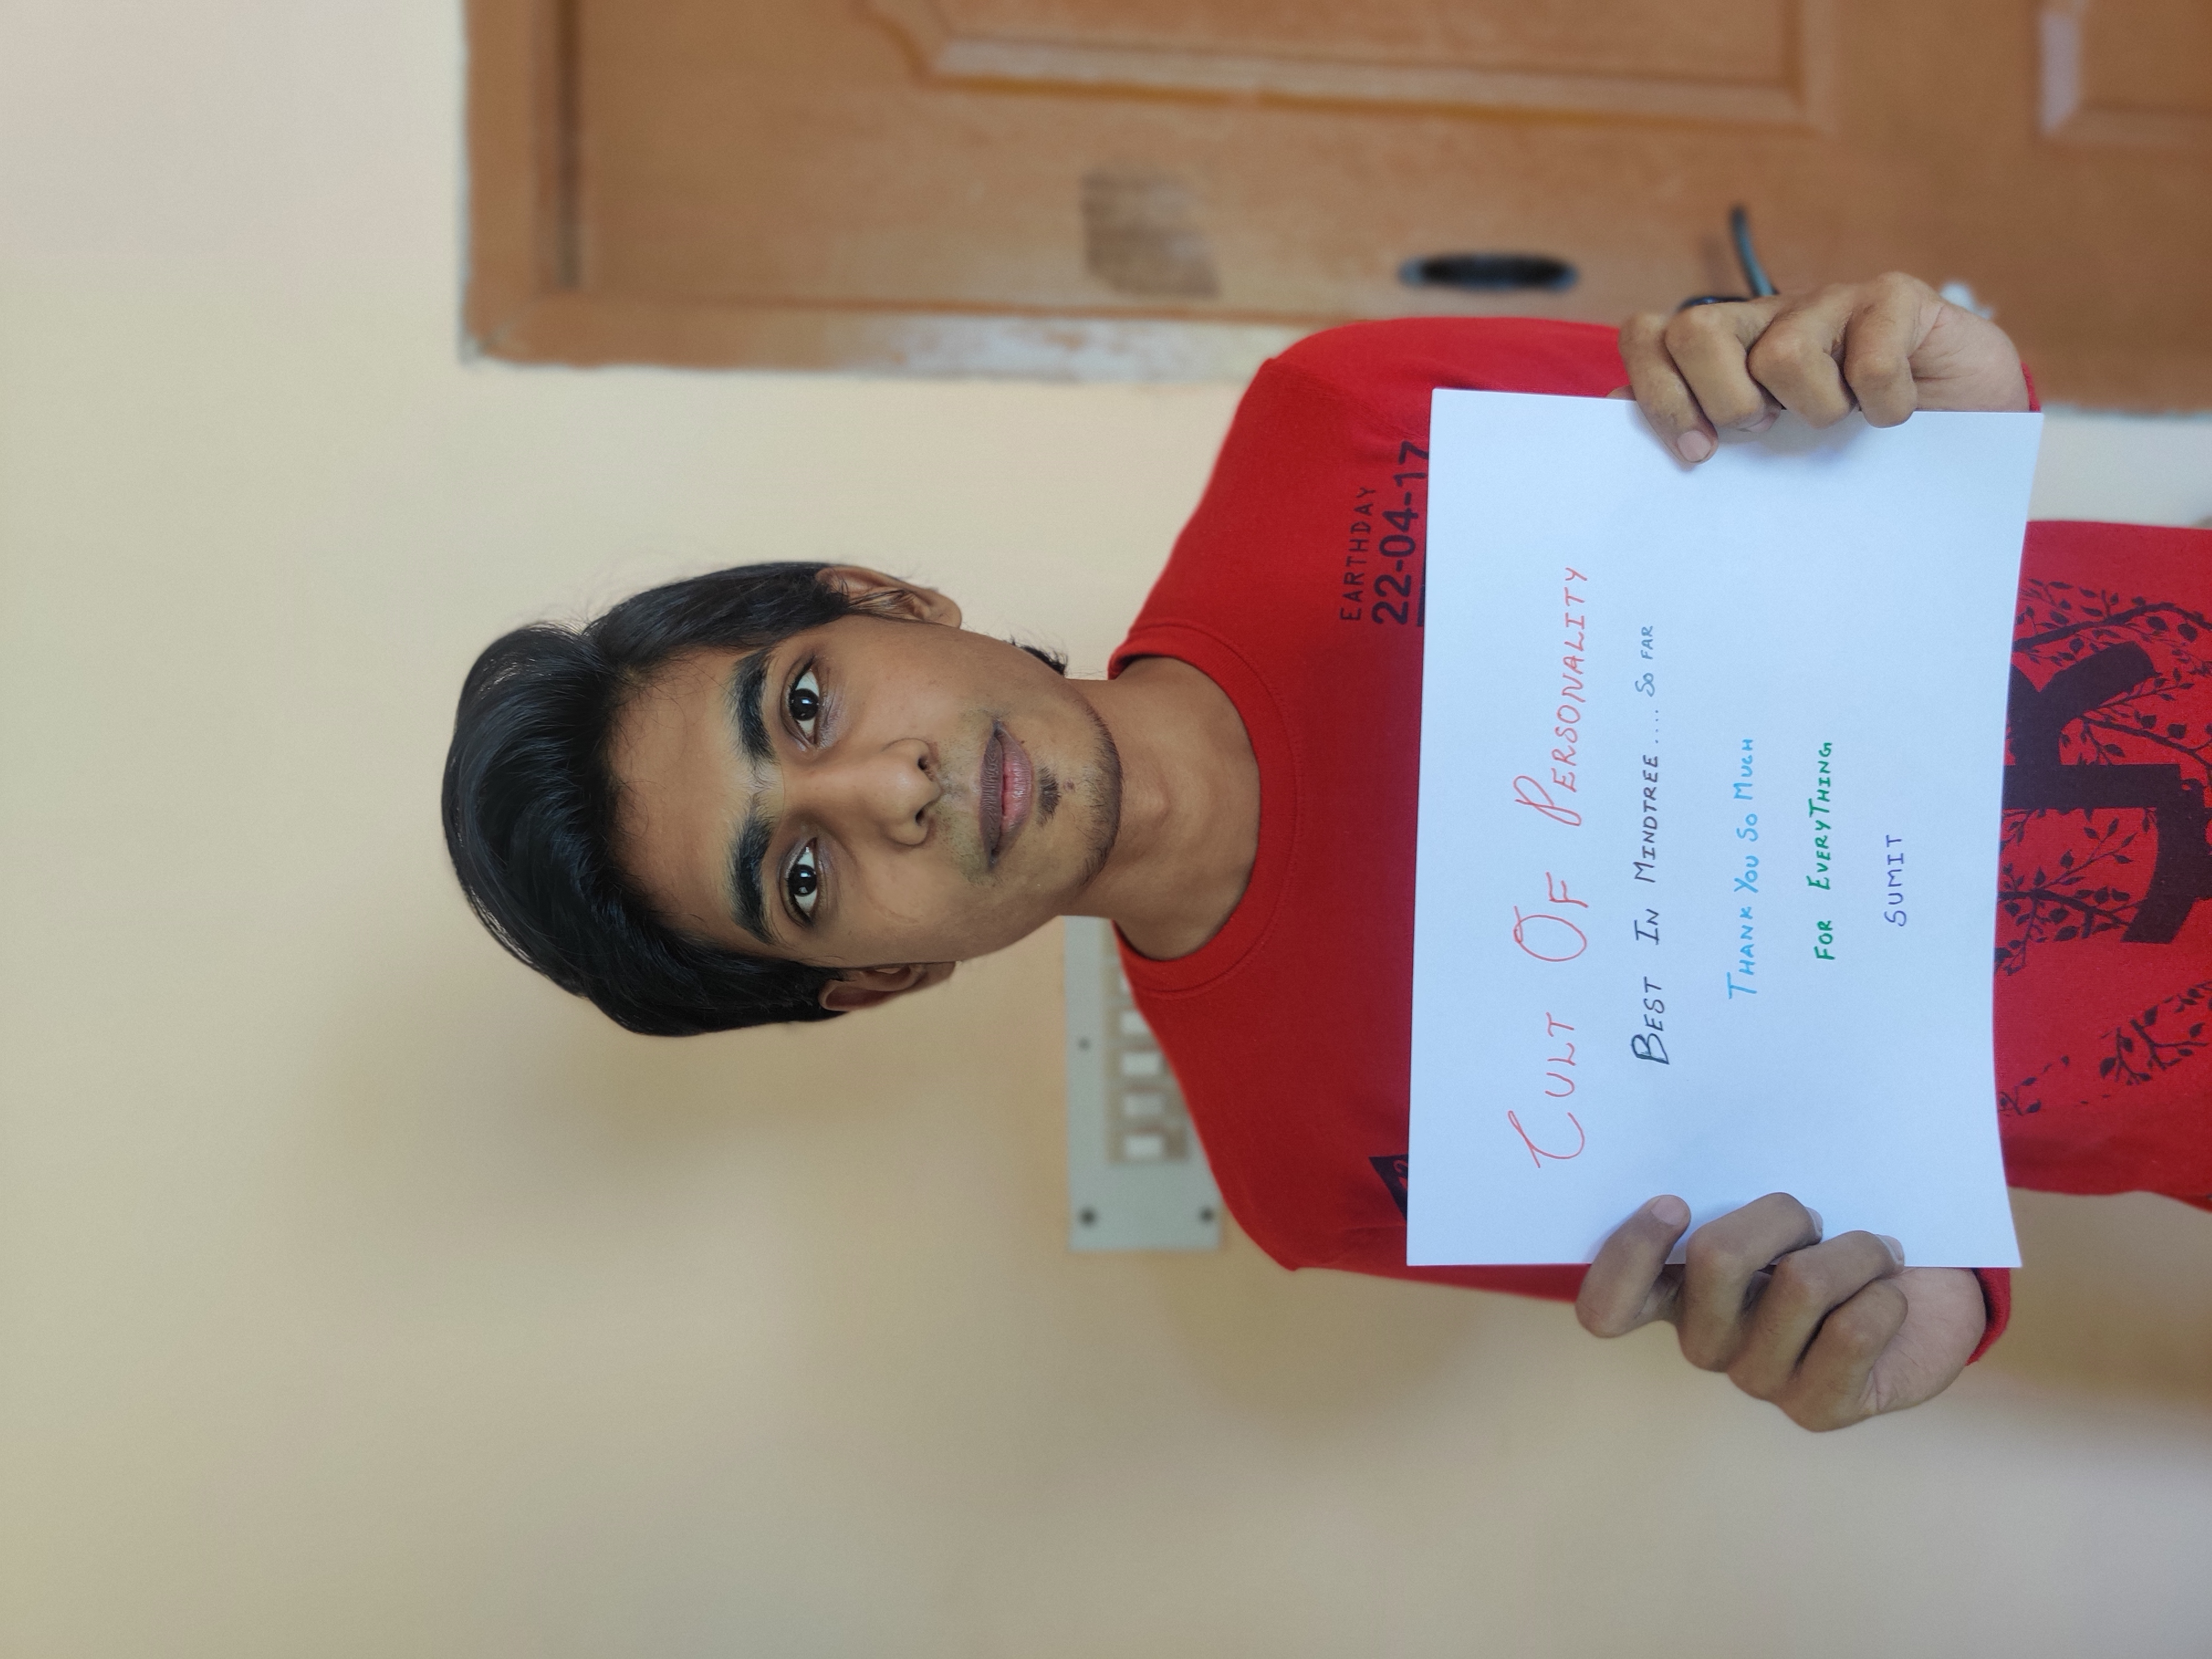 EARTHDAY
22-04-17
CULT OF PERSONALITY
BEST IN MINDTREE.... SO FAR
THANK YOU SO MUCH
FOR EVERYTHING
SUMIT